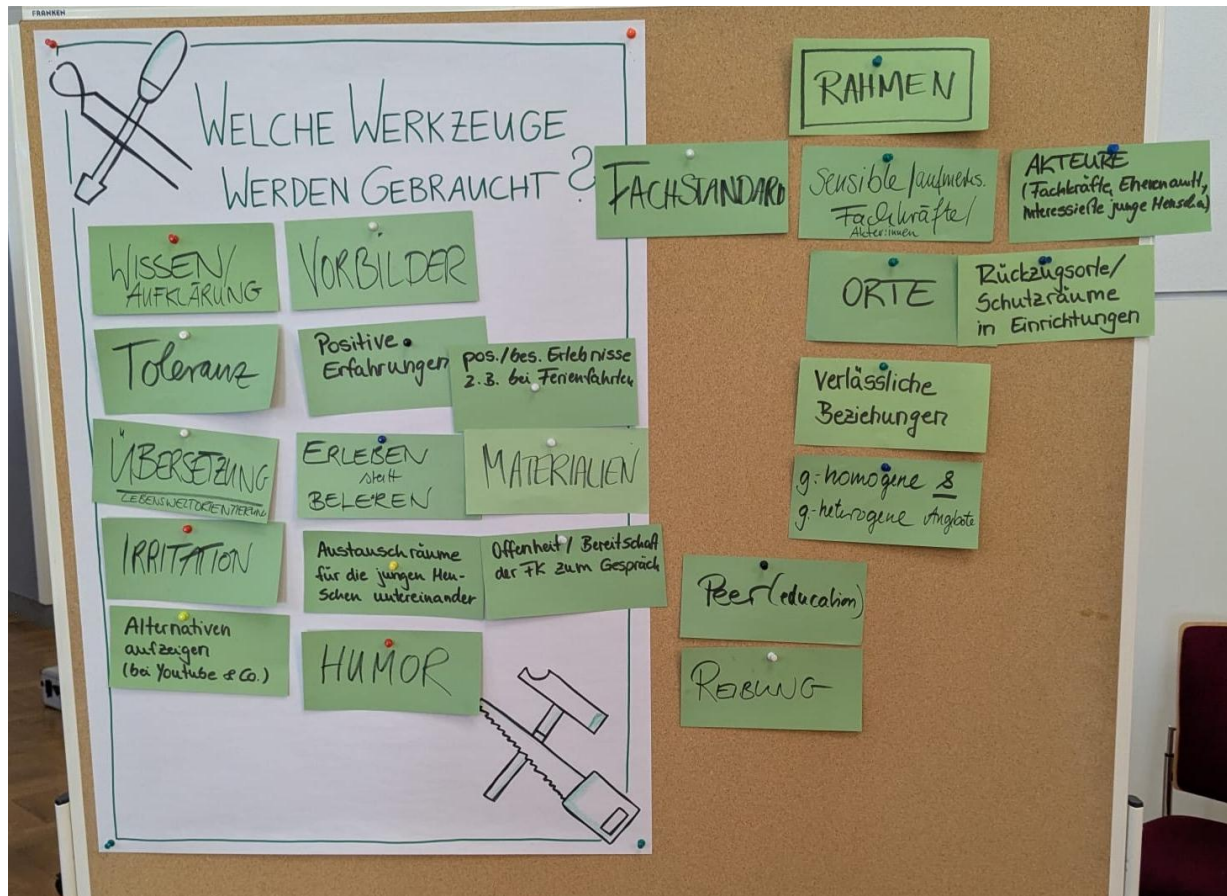 FRANKEN
WELCHE WERKZEUGE
WERDEN GEBRAUCHT?
WISSEN/
AUFKLÄRUNG
VORBILDER
Toleranz
Positive
Erfahrungen
pos./bes. Erlebnisse
z.B. bei Ferienfahrten
ÜBERSETZUNG
LEBENSWELTORIENTIERUNG
ERLEBEN
statt
BELEREN
MATERIALIEN
IRRITATION
Austauschräume
für die jungen Men-
schen untereinander
Offenheit / Bereitschaft
der FK zum Gespräch
Alternativen
aufzeigen
(bei Youtube & Co.)
HUMOR
RAHMEN
FACHSTANDARD
Sensible/aufmerks.
Fachkräfte/
Akteur:innen
AKTEURE
(Fachkräfte, Ehrenamt,
interessierte junge Menschen)
ORTE
Rückzugsorte/
Schutzräume
in Einrichtungen
Verlässliche
Beziehungen
g.-homogene &
g.-heterogene Angebote
Peer (education)
REIBUNG